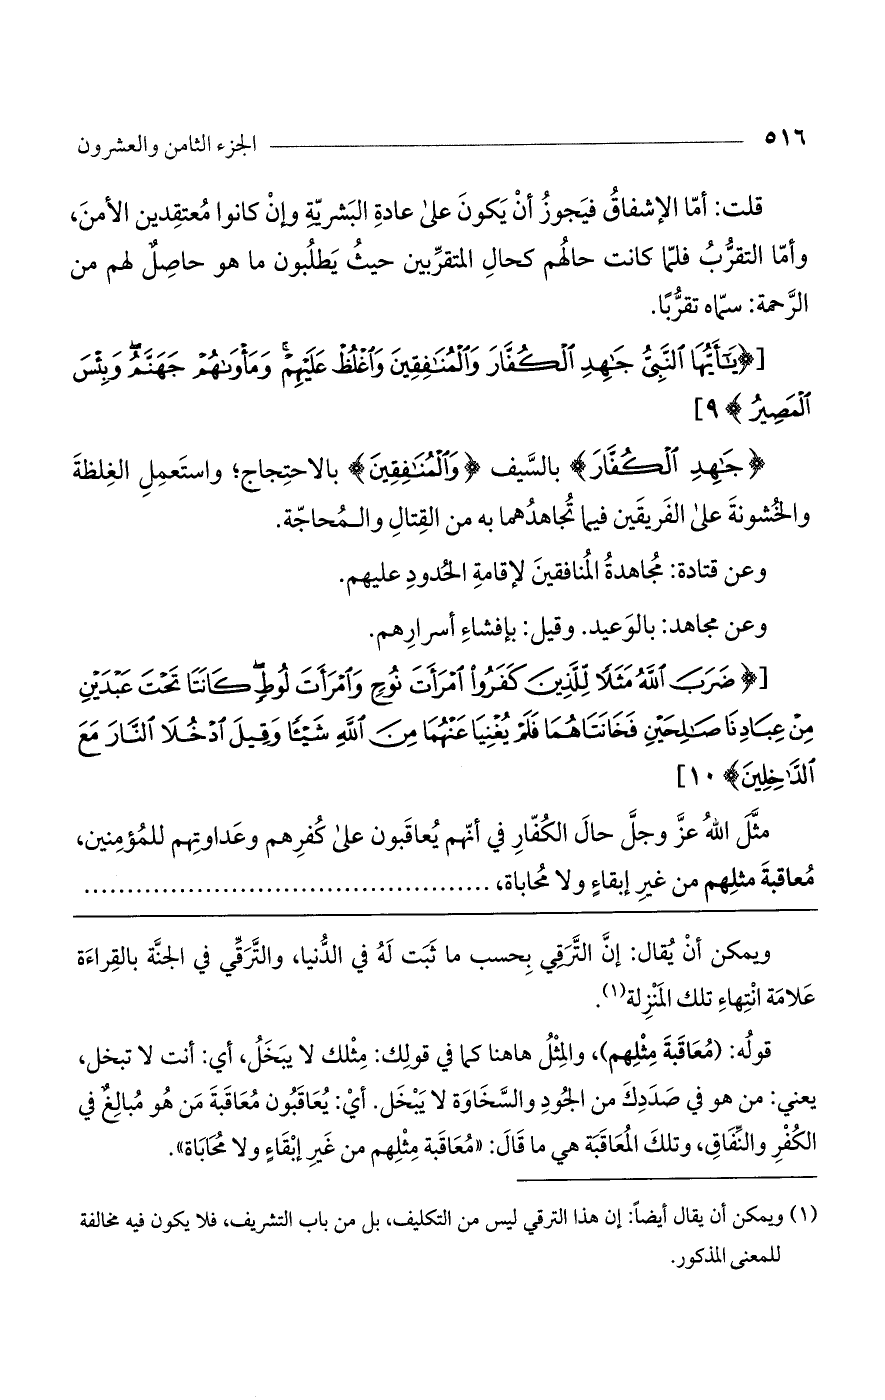 ٥١٦ الجزء الثامن والعشرون
قلت: أمّا الإشفاقُ فيَجوزُ أنْ يَكونَ علىٰ عادةِ البَشريّةِ وإنْ كانوا مُعتقِدين الأمنَ،
وأمّا التقرُّبُ فلمّا كانت حالُهم كحالِ المتقرِّبين حيثُ يَطلُبون ما هو حاصِلٌ لهم من
الرَّحمة: سمّاه تقرُّبًا.
[﴿يَٰٓأَيُّهَا ٱلنَّبِىُّ جَٰهِدِ ٱلْكُفَّارَ وَٱلْمُنَٰفِقِينَ وَٱغْلُظْ عَلَيْهِمْ ۚ وَمَأْوَىٰهُمْ جَهَنَّمُ ۖ وَبِئْسَ
ٱلْمَصِيرُ﴾ ٩]
﴿جَٰهِدِ ٱلْكُفَّارَ﴾ بالسَّيف ﴿وَٱلْمُنَٰفِقِينَ﴾ بالاحتِجاج؛ واستَعمِلِ الغِلظةَ
والخُشونةَ علىٰ الفَريقَين فيما تُجاهدُهما به من القِتالِ والـمُحاجّة.
وعن قتادة: مُجاهدةُ المُنافقينَ لإقامةِ الحُدودِ عليهم.
وعن مجاهد: بالوَعيد. وقيل: بإفشاءِ أسرارِهم.
[﴿ضَرَبَ ٱللَّهُ مَثَلًا لِّلَّذِينَ كَفَرُوا۟ ٱمْرَأَتَ نُوحٍ وَٱمْرَأَتَ لُوطٍ ۖ كَانَتَا تَحْتَ عَبْدَيْنِ
مِنْ عِبَادِنَا صَٰلِحَيْنِ فَخَانَتَاهُمَا فَلَمْ يُغْنِيَا عَنْهُمَا مِنَ ٱللَّهِ شَيْـًٔا وَقِيلَ ٱدْخُلَا ٱلنَّارَ مَعَ
ٱلدَّٰخِلِينَ﴾ ١٠]
مثَّلَ اللهُ عزَّ وجلَّ حالَ الكُفّارِ في أنّهم يُعاقَبون علىٰ كُفرِهم وعَداوتِهم للمُؤمنين،
مُعاقبةَ مثلِهم من غيرِ إبقاءٍ ولا مُحاباة، ...............................................
ويمكن أنْ يُقال: إنَّ التَّرَقي بِحسب ما ثَبَت لَهُ في الدُّنيا، والتَّرَقِّي في الجنَّة بالقِراءَة
عَلامَة انْتِهاءِ تلك المَنْزِلة(١).
قولُه: (مُعَاقَبةَ مِثْلِهم)، والمِثْلُ هاهنا كما في قولِك: مِثْلك لا يبَخَلُ، أي: أنت لا تبخل،
يعني: من هو في صَدَدِكَ من الجُودِ والسَّخَاوَة لا يَبْخَل. أيْ: يُعَاقَبُون مُعَاقَبَةَ مَن هُو مُبالِغٌ في
الكُفْرِ والنِّفَاقِ، وتلكَ المُعَاقَبَة هي ما قَالَ: «مُعَاقَبة مِثْلِهم من غَيرِ إبْقَاءٍ ولا مُحَابَاة».
(١) ويمكن أن يقال أيضاً: إن هذا الترقي ليس من التكليف، بل من باب التشريف، فلا يكون فيه مخالفة
للمعنى المذكور.